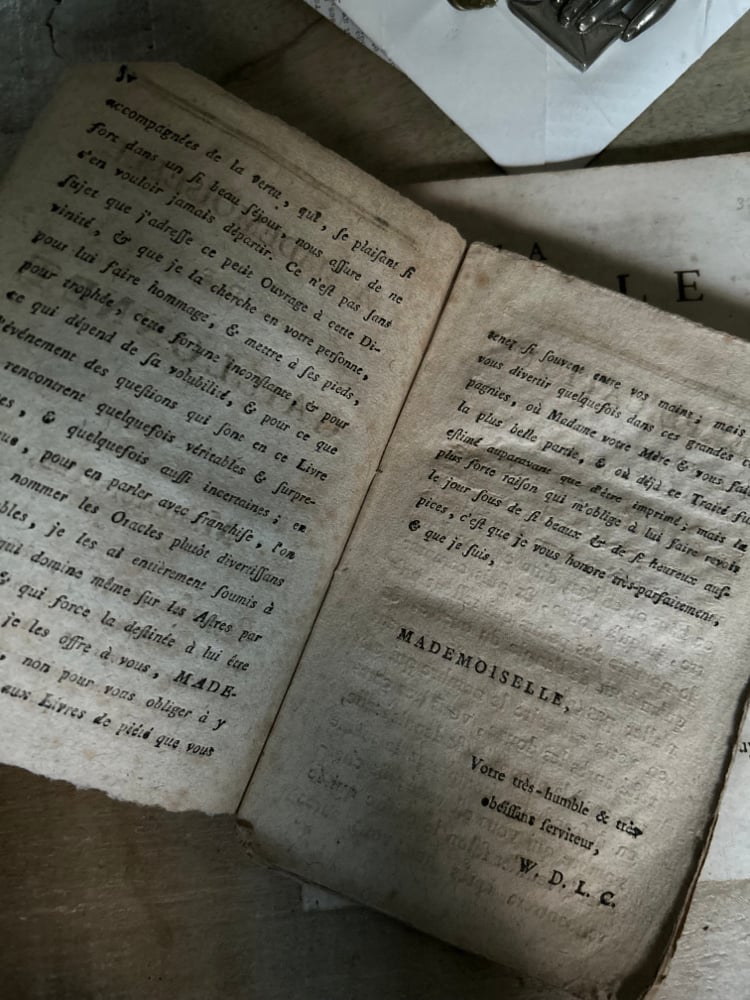 iv
accompagnées de la vertu, qui, ſe plaiſant ſi
fort dans un ſi beau ſéjour, nous aſſure de ne
s'en vouloir jamais départir. Ce n'eſt pas ſans
ſujet que j'adreſſe ce petit Ouvrage à cette Di-
vinité, & que je la cherche en votre perſonne,
pour lui faire hommage, & mettre à ſes pieds,
pour trophée, cette fortune inconſtante, & pour
ce qui dépend de ſa volubilité, & pour ce que
l'événement des queſtions qui ſont en ce Livre
rencontrent quelquefois véritables & ſurpre-
& quelquefois auſſi incertaines; en
pour en parler avec franchiſe, l'on
nommer les Oracles plutôt divertiſſans
je les ai entièrement ſoumis à
qui domine même ſur les Aſtres par
& qui force la deſtinée à lui être
je les offre à vous, MADE-
non pour vous obliger à y
aux Livres de piété que vous
tenez ſi ſouvent entre vos mains; mais
vous divertir quelquefois dans ces grandes
pagnies, où Madame votre Mère & vous
la plus belle partie, & où déjà ce Traité
eſtimé auparavant que d'être imprimé; mais la
plus forte raiſon qui m'oblige à lui faire revoir
le jour ſous de ſi beaux & de ſi heureux auſ-
pices, c'eſt que je vous honore très-parfaitement,
& que je ſuis,
MADEMOISELLE,
Votre très-humble & très
obéiſſant ſerviteur,
W. D. L. C.
LA
LE